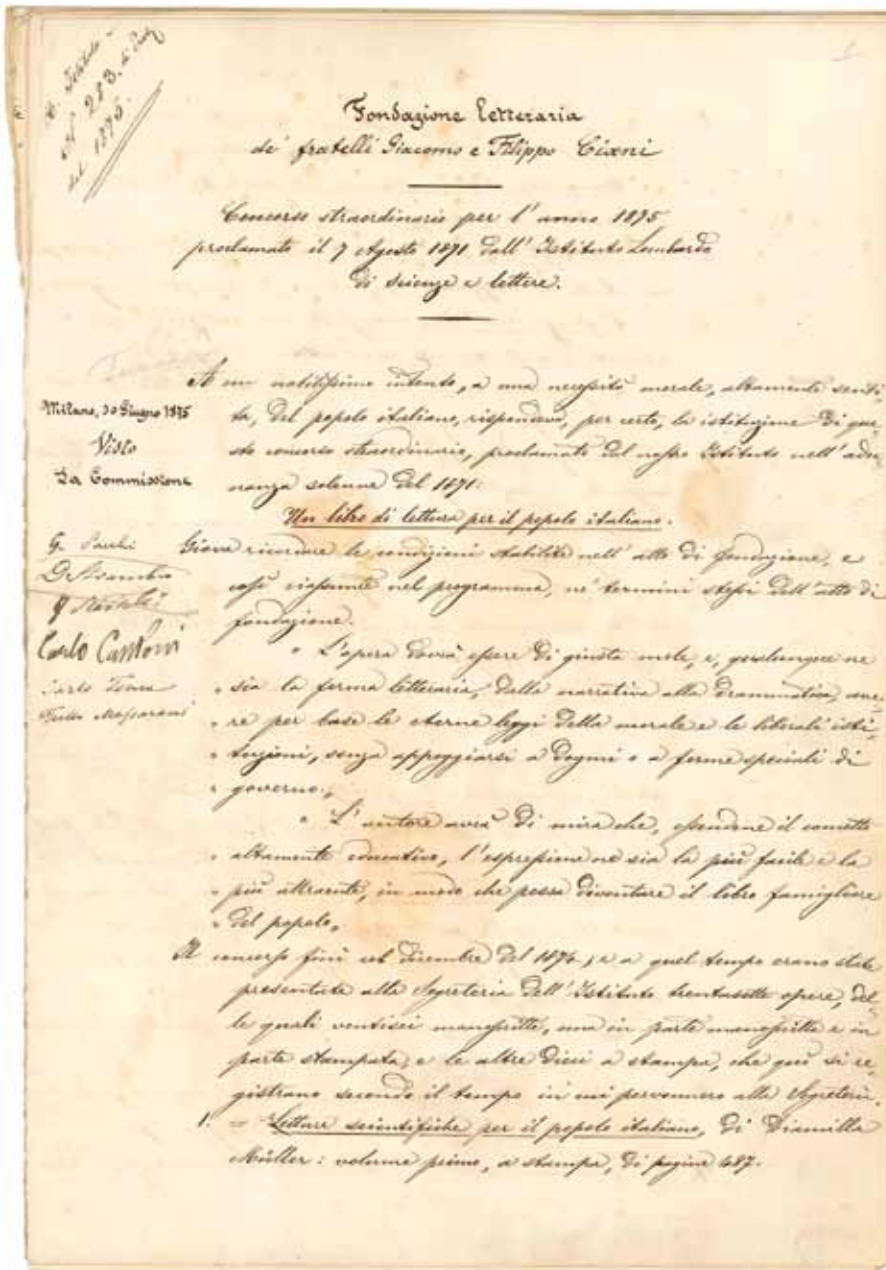 R. Istituto
N. 283. di Prot.
del 1875.
1
Fondazione letteraria
de' fratelli Giacomo e Filippo Ciani
Concorso straordinario per l'anno 1875
proclamato il 7 Agosto 1871 dall'Istituto Lombardo
di scienze e lettere.
A un nobilissimo intento, a una necessità morale, altamente senti-
ta, del popolo italiano, rispondeva, per certo, la istituzione di que-
sto concorso straordinario, proclamato dal nostro Istituto nell'adu-
nanza solenne del 1871:
Un libro di lettura per il popolo italiano.
Milano, 30 Giugno 1875
Visto
La Commissione
G. Sacchi
Carlo Cantoni
Carlo Tenca
Tullo Massarani
Giova ricordare le condizioni stabilite nell'atto di fondazione, e
così riassunte nel programma, ne' termini stessi dell'atto di
fondazione.
" L'opera dovrà essere di giusta mole, e, qualunque ne
" sia la forma letteraria, dalla narrativa alla drammatica, ave-
" re per base le eterne leggi della morale e le liberali isti-
" tuzioni, senza appoggiarsi a dogmi o a forme speciali di
" governo.„
" L'autore avrà di mira che, essendone il concetto
" altamente educativo, l'espressione ne sia la più facile e la
" più attraente, in modo che possa diventare il libro famigliare
" del popolo„
Il concorso finì col dicembre del 1874; e a quel tempo erano state
presentate alla Segreteria dell'Istituto trentasette opere, del-
le quali ventisei manoscritte, una in parte manoscritta e in
parte stampata, e le altre dieci a stampa, che qui si re-
gistrano secondo il tempo in cui pervennero alla Segreteria.
1. = Letture scientifiche per il popolo italiano, di Diamilla
Müller: volume primo, a stampa, di pagine 487.